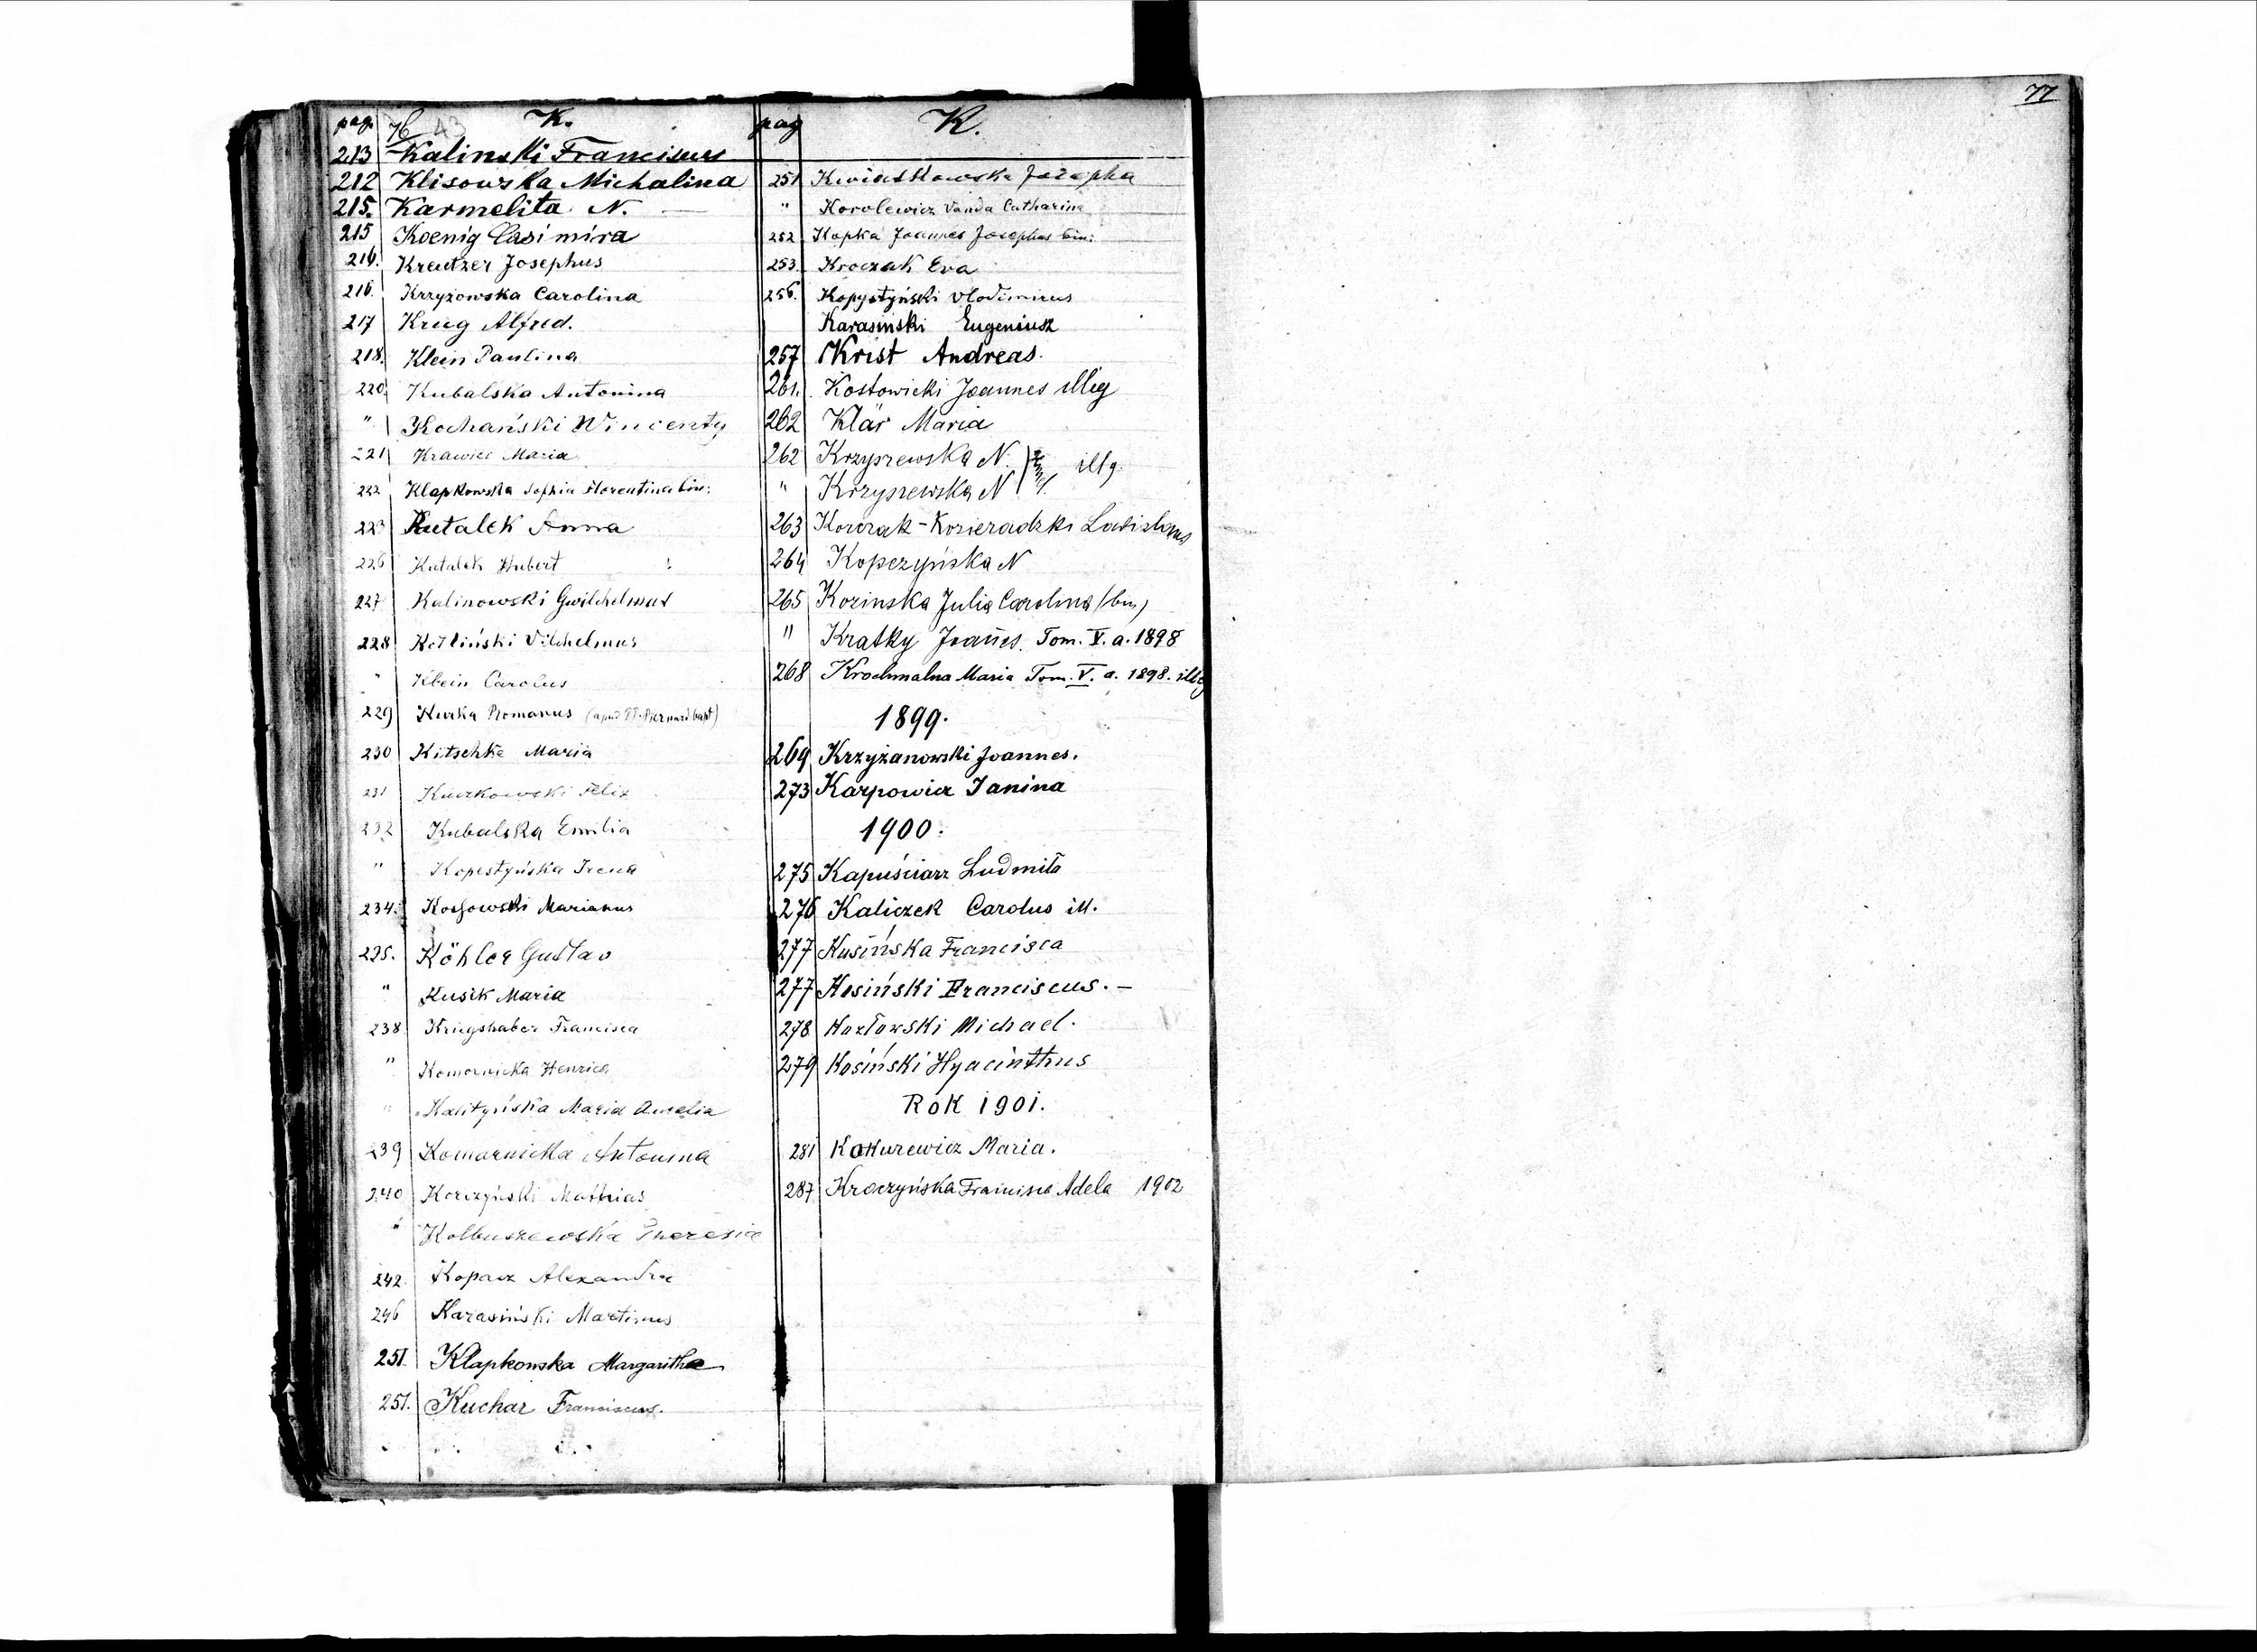 pag. 76 43 K.
213 Kalinski Franciscus
212 Klisowska Michalina
215. Karmelita N. —
215 Koenig Casimira
216. Kreutzer Josephus
216. Krzyżowska Carolina
217 Krug Alfred.
218. Klein Paulina
220. Kubalska Antonina
" Kochański Wincenty
221 Krawiec Maria
222 Klapkowska Sophia Florentina bin:
223 Kutalek Anna
226 Kutalek Hubert
227 Kalinowski Gwilchelmus
228 Kotliński Vilchelmus
" Klein Carolus
229 Kurka Romanus (apud PP. Bernard bapt)
230 Kitschke Maria
231 Kurkowski Felix
232 Kubalska Emilia
" Kopestyńska Irena
234. Kossowski Marianus
235. Köhler Gustav
" Kusik Maria
238 Kriegshaber Francisca
" Komarnicka Henrica
" Maria Amelia
239 Komarnicka Antonina
240 Korczyński Mathias
" Kolbuszewska Theresia
242. Kopacz Alexandra
246 Karasiński Martinus
251. Klapkowska Margaritha
251. Kuchar Franciscus.
pag K.
251 Kwiatkowska Josepha
" Korolewicz Vanda Catharina
252. Kopka Joannes Josephus bin:
253. Kroczak Eva
256. Kopystyński Vlodimirus
Karasinski Eugeniusz
257 Krist Andreas.
261. Kostowicki Joannes illig
262 Klär Maria
262 Krzyszewska N. illg.
" Krzyszewska N
263 Kowzak-Kozieradzki Ladislaus
264 Kopczyńska N
265 Kozinska Julia Carolina (bin)
" Kratky Joañes. Tom. V. a. 1898
268 Krochmalna Maria Tom. V. a. 1898. illg
1899.
269 Krzyżanowski Joannes.
273 Karpowicz Janina
1900.
275 Kapuściarz Ludmiła
276 Kaliczek Carolus ill.
277 Kusińska Francisca
277 Kosiński Franciscus. —
278 Kozłowski Michael.
279 Kosiński Hyacinthus
Rok 1901.
281 Kokurewicz Maria.
287 Kroczyńska Francisca Adela 1902
77